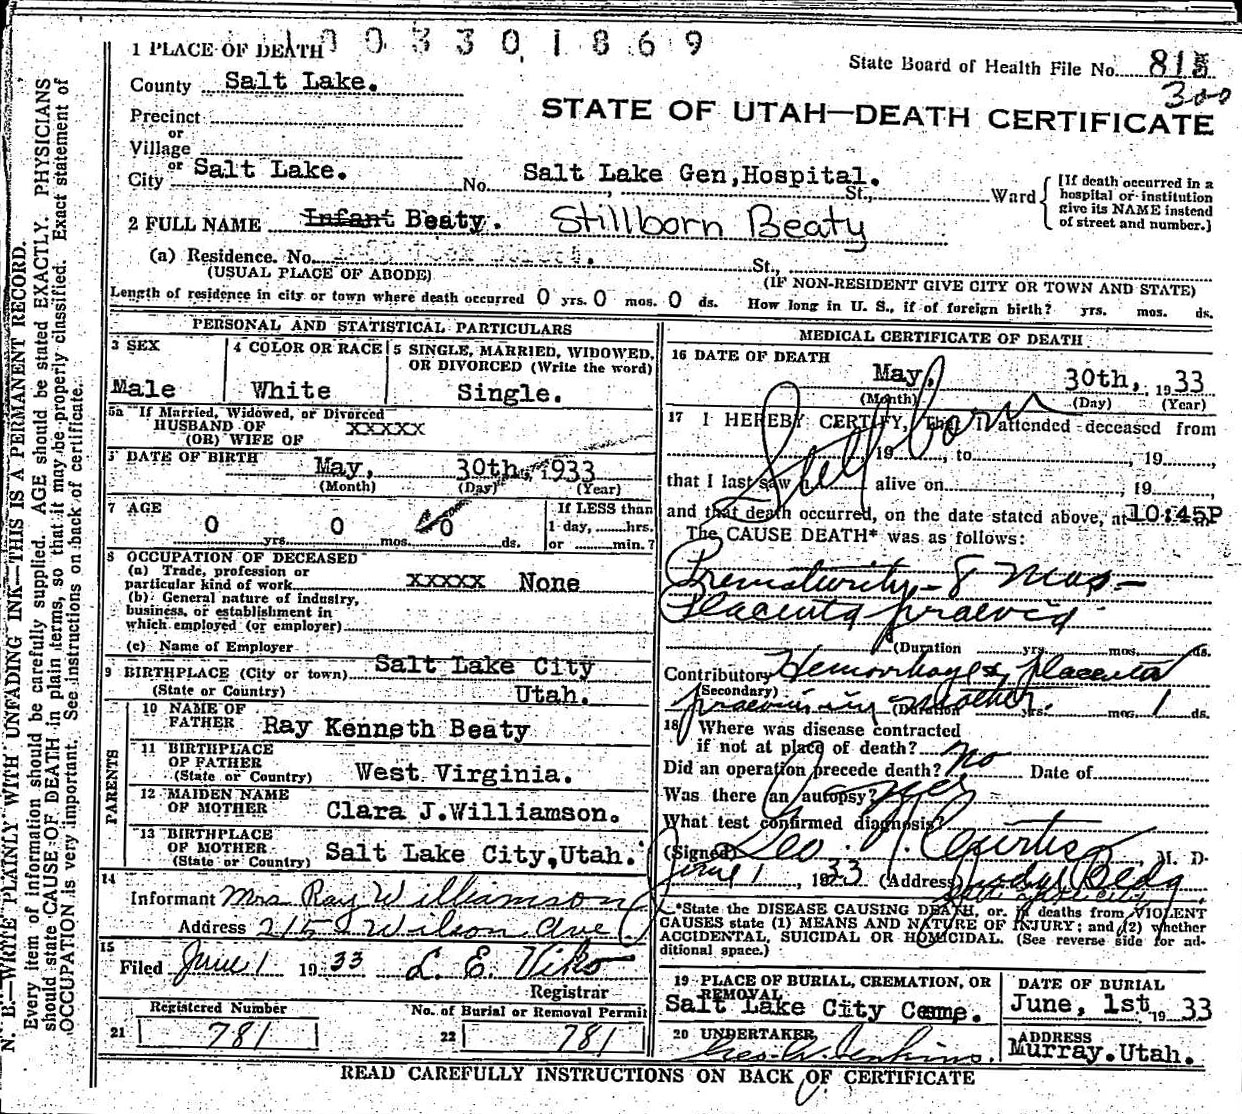 1 PLACE OF DEATH
003301869
State Board of Health File No. 815
300
County Salt Lake.
STATE OF UTAH—DEATH CERTIFICATE
Precinct
or
Village
or
City Salt Lake. No. Salt Lake Gen, Hospital. St., Ward
[If death occurred in a hospital or institution give its NAME instead of street and number.]
2 FULL NAME Infant Beaty. Stillborn Beaty
(a) Residence. No. St.,
(USUAL PLACE OF ABODE) (IF NON-RESIDENT GIVE CITY OR TOWN AND STATE)
Length of residence in city or town where death occurred 0 yrs. 0 mos. 0 ds. How long in U. S., if of foreign birth? yrs. mos. ds.
PERSONAL AND STATISTICAL PARTICULARS
3 SEX
Male
4 COLOR OR RACE
White
5 SINGLE, MARRIED, WIDOWED, OR DIVORCED (Write the word)
Single.
5a If Married, Widowed, or Divorced
HUSBAND OF
(OR) WIFE OF
XXXXX
DATE OF BIRTH
May, 30th, 1933
(Month) (Day) (Year)
7 AGE
0 yrs. 0 mos. 0 ds.
If LESS than
1 day, hrs.
or min.?
8 OCCUPATION OF DECEASED
(a) Trade, profession or
particular kind of work XXXXX None
(b) General nature of industry,
business, or establishment in
which employed (or employer)
(c) Name of Employer
9 BIRTHPLACE (City or town) Salt Lake City
(State or Country) Utah.
PARENTS
10 NAME OF
FATHER Ray Kenneth Beaty
11 BIRTHPLACE
OF FATHER
(State or Country) West Virginia.
12 MAIDEN NAME
OF MOTHER Clara J.Williamson.
13 BIRTHPLACE
OF MOTHER
(State or Country) Salt Lake City, Utah.
14
Informant Mrs Ray Williamson
Address 215 Wilson Ave
15
Filed June 1 1933 L. E. Viko
Registrar
Registered Number
21 781
No. of Burial or Removal Permit
22 781
MEDICAL CERTIFICATE OF DEATH
16 DATE OF DEATH
May, 30th, 1933
(Month) (Day) (Year)
17 I HEREBY CERTIFY, That I attended deceased from
19 , to , 19 ,
that I last saw h alive on , 19 ,
Still born
and that death occurred, on the date stated above, at 10:45P
The CAUSE DEATH* was as follows:
Prematurity - 8 mos -
Placenta praevia
(Duration yrs. mos. ds.
Contributory Hemorrhage placenta
(Secondary) in mother.
(Duration yrs. mos. 1 ds.
18 Where was disease contracted
if not at place of death?
Did an operation precede death? no Date of
Was there an autopsy? yes
What test confirmed diagnosis?
(Signed) Geo. N. Curtis, M. D.
June 1, 1933 (Address) Bldg
*State the DISEASE CAUSING DEATH, or in deaths from VIOLENT
CAUSES state (1) MEANS AND NATURE OF INJURY; and (2) whether
ACCIDENTAL, SUICIDAL OR HOMICIDAL. (See reverse side for ad-
ditional space.)
19 PLACE OF BURIAL, CREMATION, OR
REMOVAL
Salt Lake City Ceme.
DATE OF BURIAL
June, 1st, 1933
20 UNDERTAKER
Geo. W. Jenkins.
ADDRESS
Murray.Utah.
READ CAREFULLY INSTRUCTIONS ON BACK OF CERTIFICATE
N. B.—WRITE PLAINLY WITH UNFADING INK—THIS IS A PERMANENT RECORD.
Every item of information should be carefully supplied. AGE should be stated EXACTLY. PHYSICIANS
should state CAUSE OF DEATH in plain terms, so that it may be properly classified. Exact statement of
OCCUPATION is very important. See instructions on back of certificate.